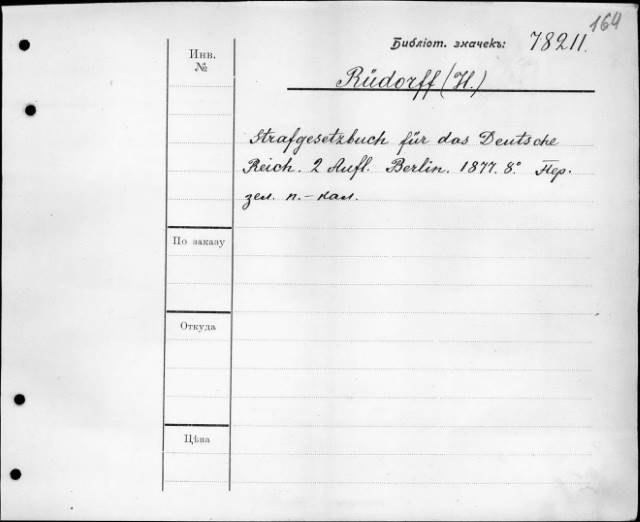 164
Библіот. значекъ: 78211.
Инв.
№
Rüdorff (H.)
Strafgesetzbuch für das Deutsche
Reich. 2 Aufl. Berlin. 1877. 8° Пер.
зел. п.-кал.
По заказу
Откуда
Цѣна